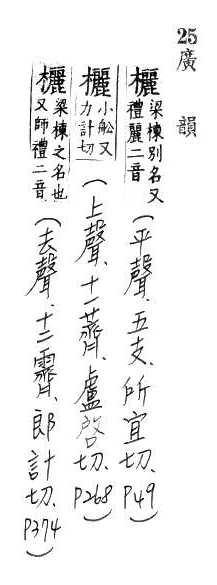 25 廣韻
欐 梁棟別名又
禮麗二音 (平聲、五支、所宜切、P49)
欐 小舩又
力計切 (上聲、十一薺、盧啓切、P268)
欐 梁棟之名也
又師禮二音 (去聲、十二霽、郎計切、P374)